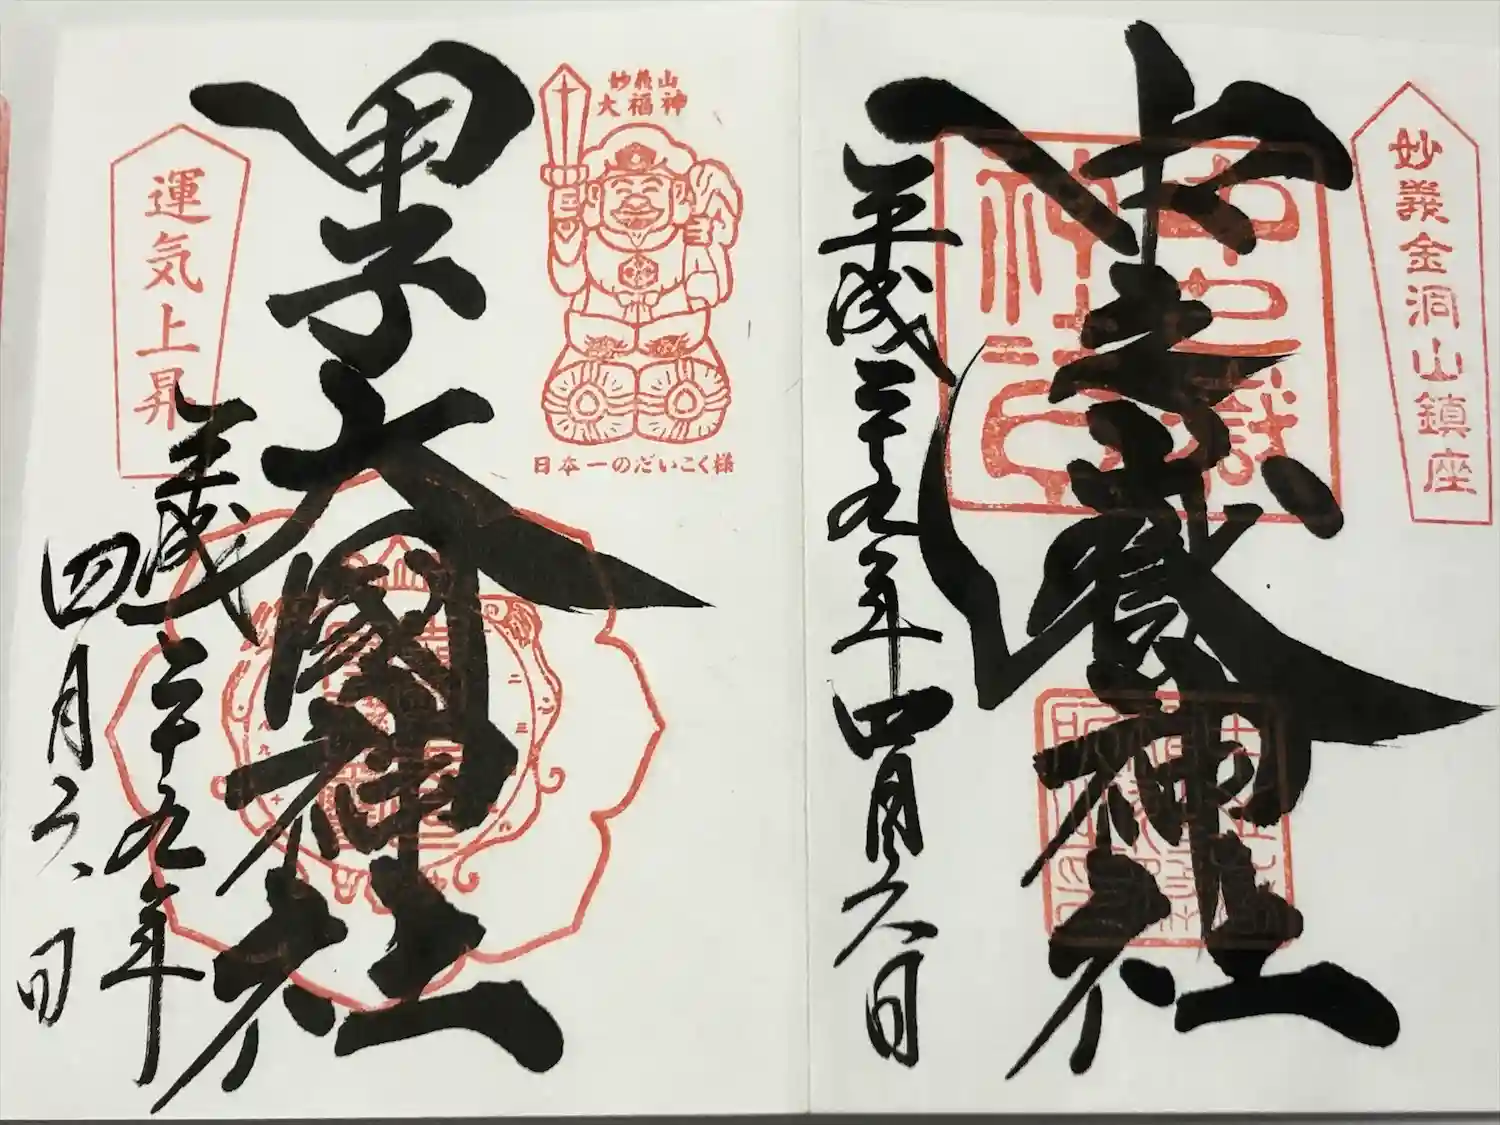 妙義金洞山鎮座
中之嶽神社
中之嶽
神社印
平成二十九年四月六日
妙義山
大福神
日本一のだいこく様
甲子大國神社
運気上昇
平成二十九年
四月六日